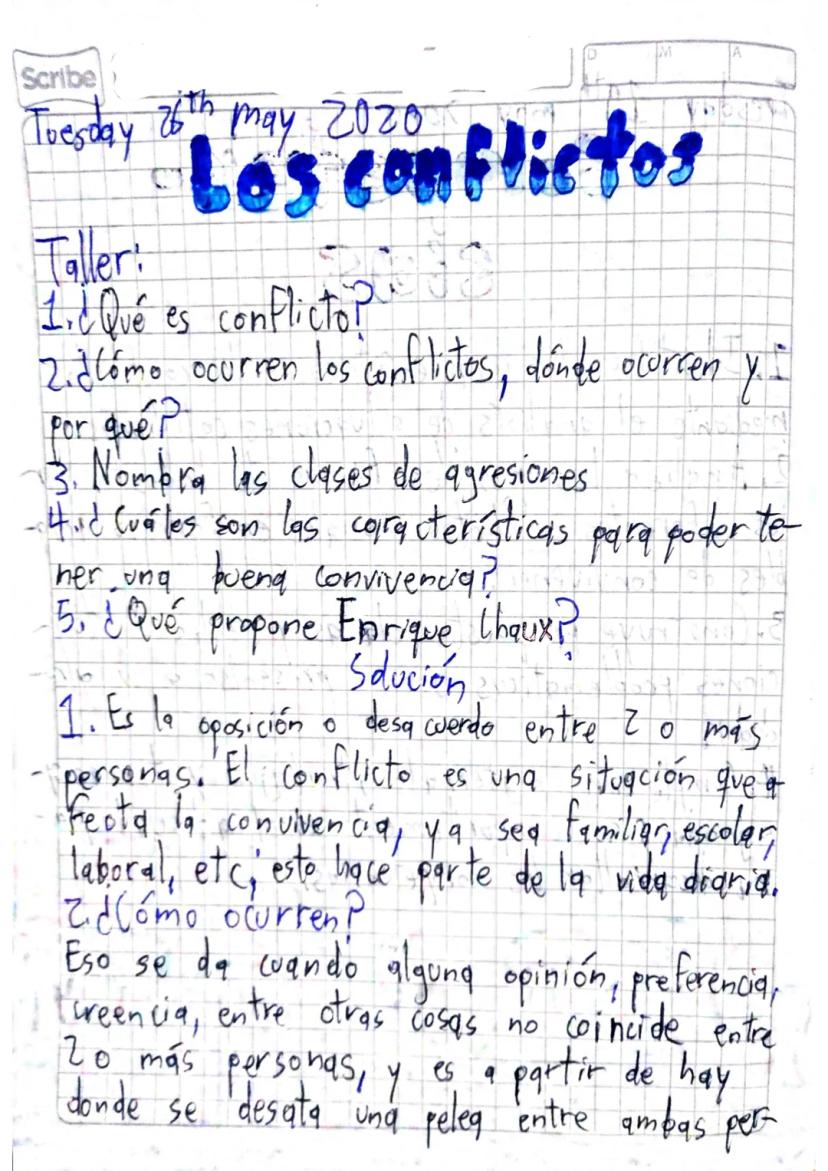 Scribe
D M A
Tuesday 26th may 2020
Los conflictos
Taller:
1. ¿Qué es conflicto?
2. ¿Cómo ocurren los conflictos, dónde ocurren y
por qué?
3. Nombra las clases de agresiones
4. ¿Cuáles son las características para poder te-
ner una buena convivencia?
5. ¿Qué propone Enrique Chaux?
Solución
1. Es la oposición o desacuerdo entre 2 o más
personas. El conflicto es una situación que a
fecta la convivencia, ya sea familiar, escolar,
laboral, etc; esto hace parte de la vida diaria.
2. ¿Cómo ocurren?
Eso se da cuando alguna opinión, preferencia,
creencia, entre otras cosas no coincide entre
2 o más personas, y es a partir de hay
donde se desata una pelea entre ambas per-